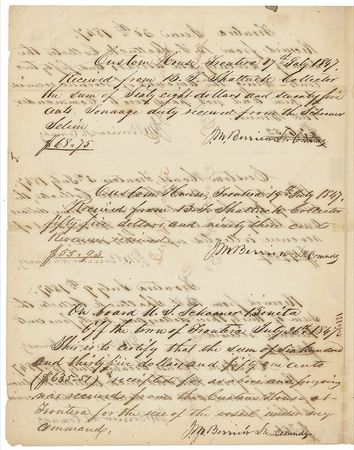 Custom House, Frontera 17th July 1847.
Received from B. S. Shattuck Collector
the sum of Sixty eight dollars and seventy five
cents Tonnage duty received from the Schooner
Selim
$68.75
J. M. Berrien Lt. Comdg
Custom House, Frontera 19th July 1847.
Received from B. S. Shattuck Collector
fifty five dollars and ninety three cents
Revenue
$55.93
J. M. Berrien Lt. Comdg
On board U. S. Schooner Bonita
Off the town of Frontera July 26th 1847
This is to certify that the sum of Six hundred
and thirty five dollars and fifty one cents
($635.51) receipted for as above and forgoing
was received from the Custom House at
Frontera for the use of the vessel under my
command,
J. M. Berrien Lt. Comdg